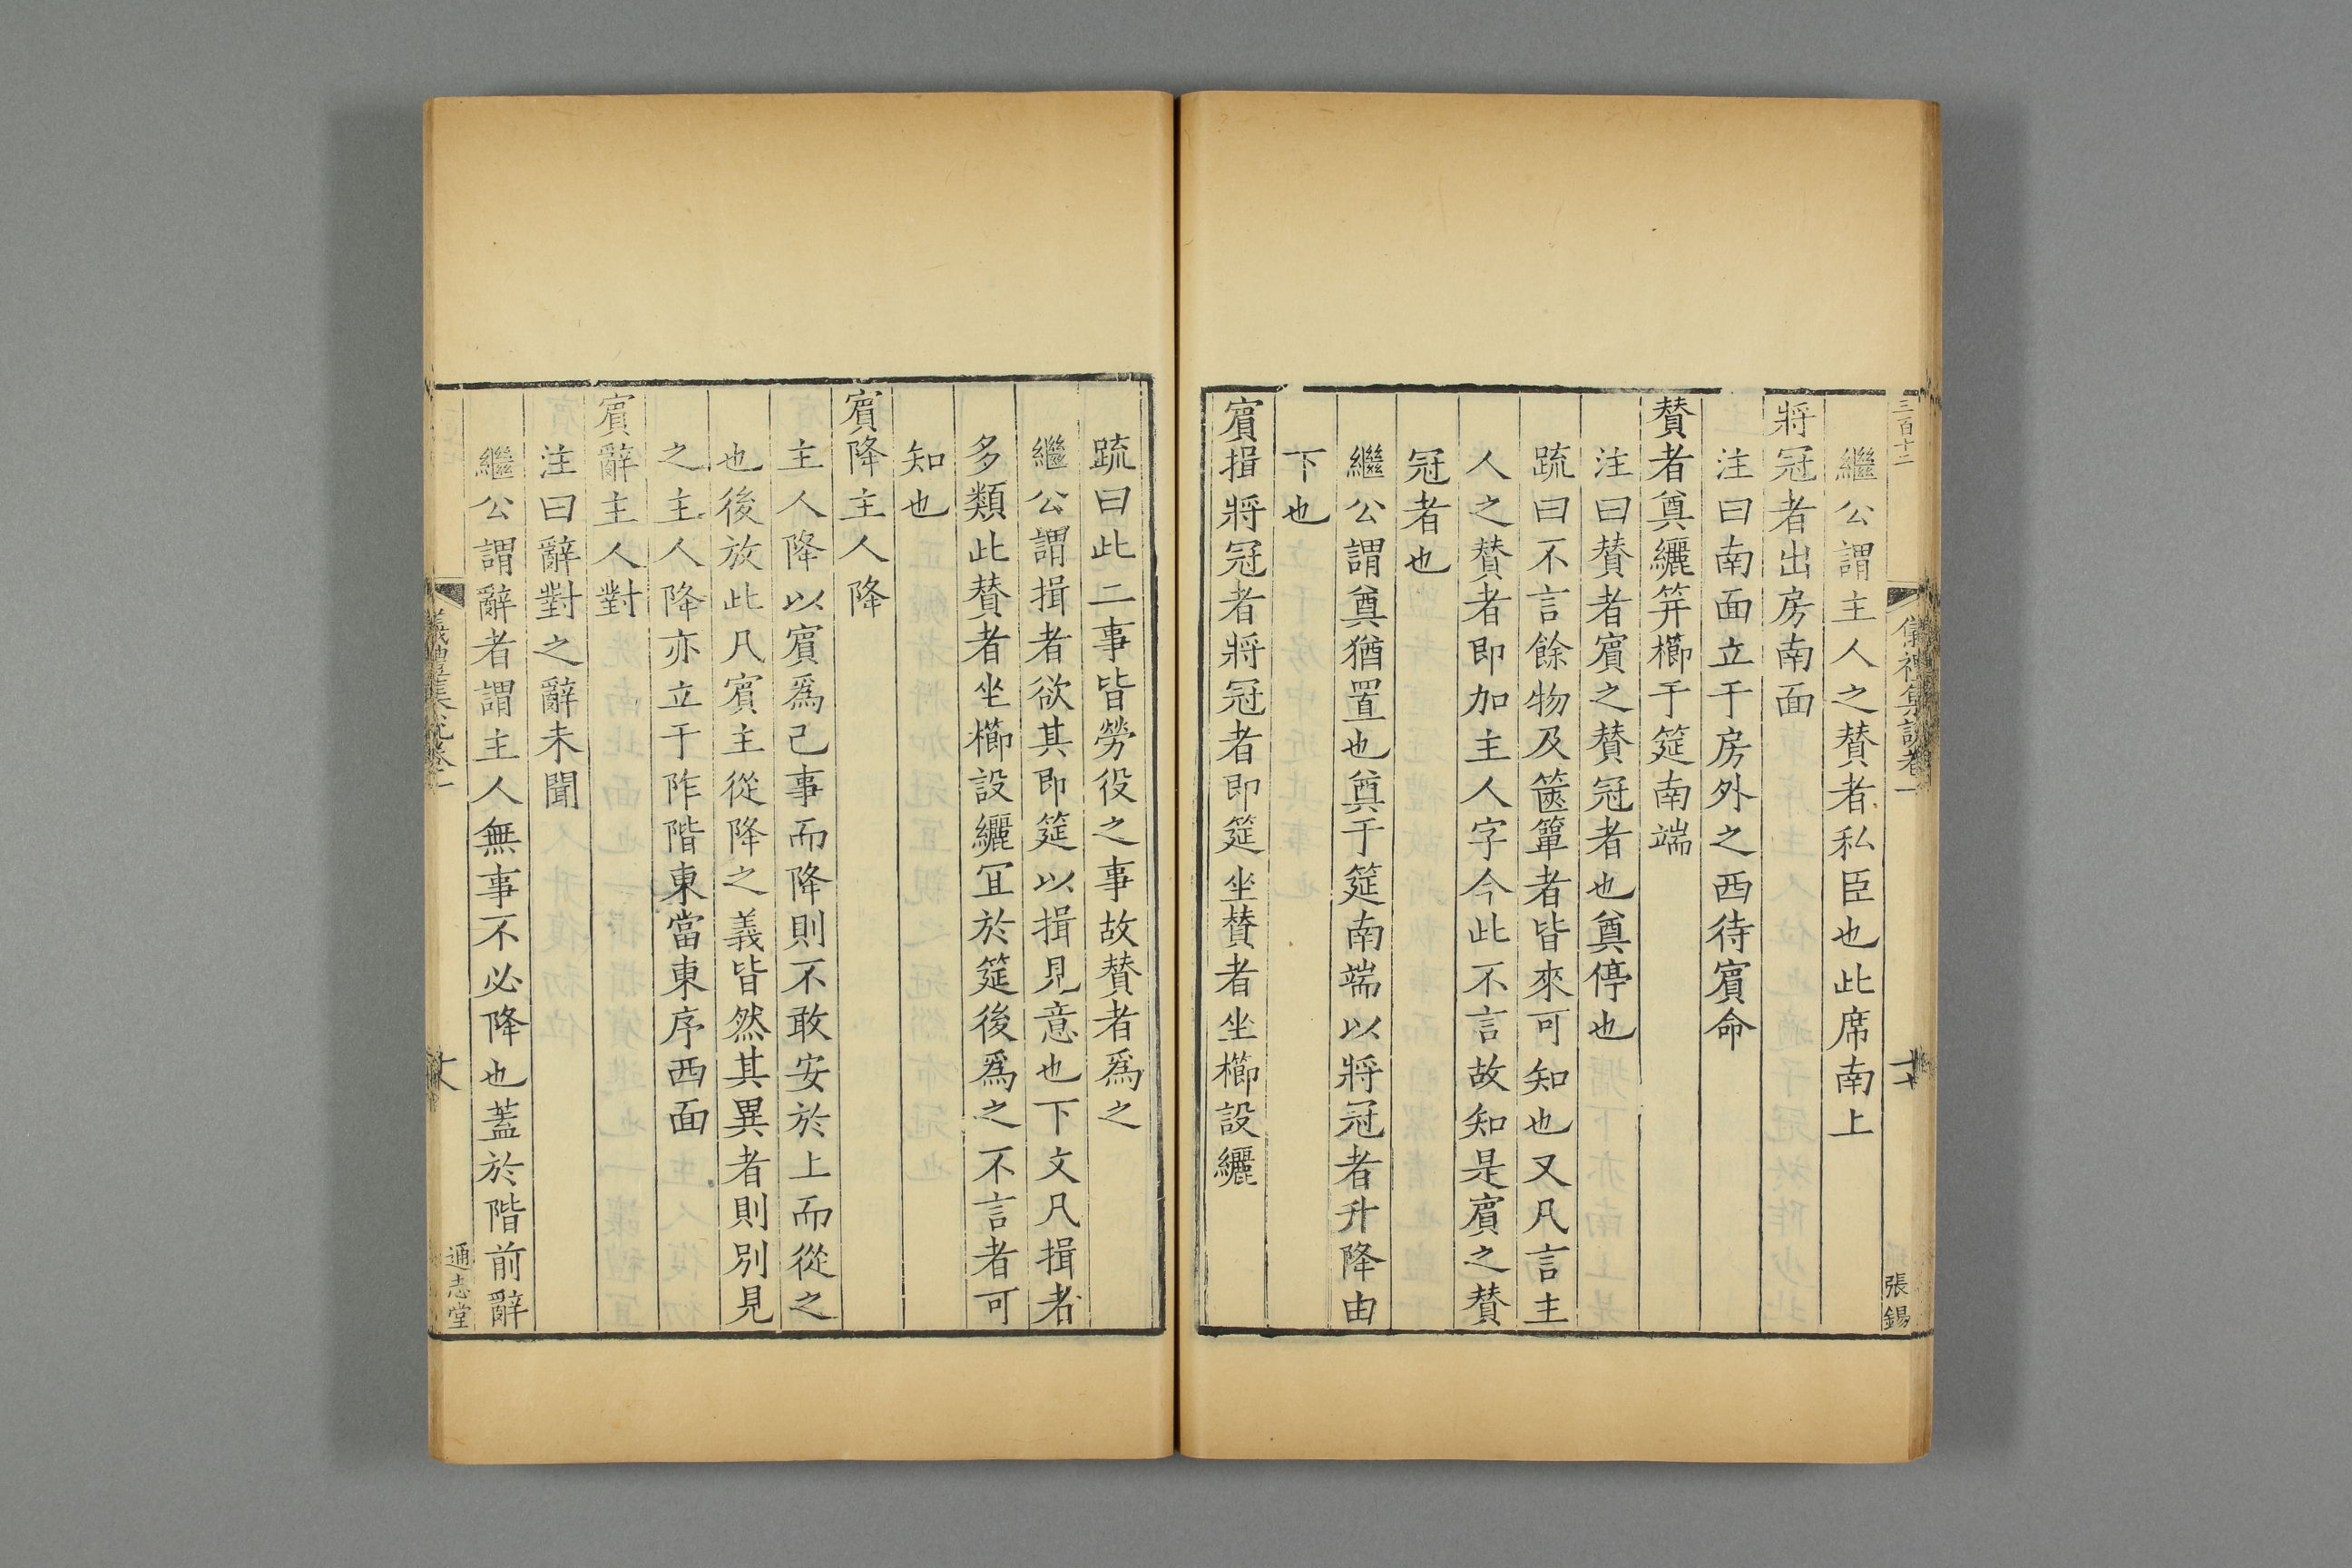 三百十二
儀禮集說卷一
張錫
繼公謂主人之賛者私臣也此席南上
將冠者出房南面
注曰南面立于房外之西待賔命
賛者奠纚筓櫛于筵南端
注曰賛者賔之賛冠者也奠停也
疏曰不言餘物及篋簞者皆來可知也又凡言主
人之賛者即加主人字今此不言故知是賔之賛
冠者也
繼公謂奠猶置也奠于筵南端以將冠者升降由
下也
賔揖將冠者將冠者即筵坐賛者坐櫛設纚
疏曰此二事皆勞役之事故賛者爲之
繼公謂揖者欲其即筵以揖見意也下文凡揖者
多類此賛者坐櫛設纚冝於筵後爲之不言者可
知也
賔降主人降
主人降以賔爲己事而降則不敢安於上而從之
也後放此凡賔主從降之義皆然其異者則別見
之主人降亦立于阼階東當東序西面
賔辭主人對
注曰辭對之辭未聞
繼公謂辭者謂主人無事不必降也蓋於階前辭
儀禮集說卷一
通志堂